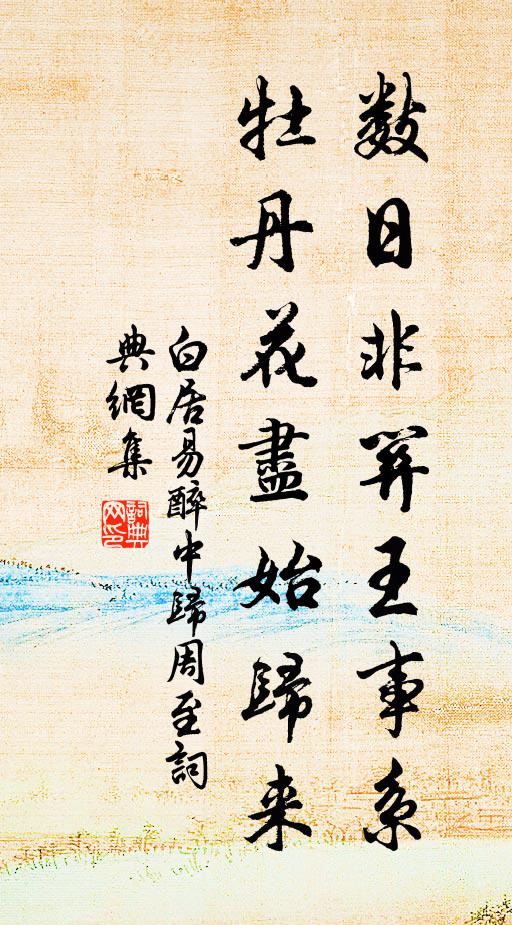 数日非关王事系
牡丹花盡始歸来
白居易醉中歸周至詞
典網集
詞典网印